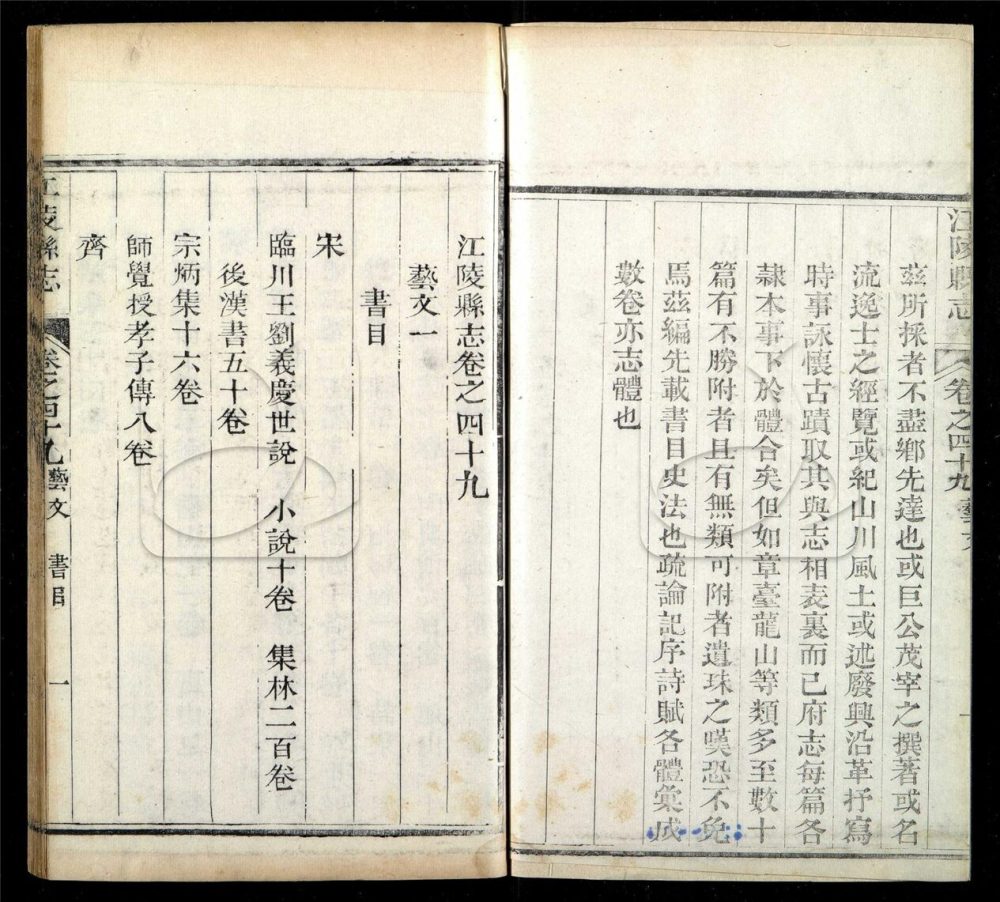 江陵縣志 卷之四十九 藝文
茲所採者不盡鄉先達也或巨公茂宰之撰著或名
流逸士之經覽或紀山川風土或述廢興沿革抒寫
時事詠懷古蹟取其與志相表裏而已府志每篇各
隸本事下於體合矣但如章臺龍山等類多至數十
篇有不勝附者且有無類可附者遺珠之嘆恐不免
焉茲編先載書目史法也疏論記序詩賦各體彙成
數卷亦志體也
江陵縣志卷之四十九
藝文一
書目
宋
臨川王劉義慶世說 小說十卷 集林二百卷
後漢書五十卷
宗炳集十六卷
師覺授孝子傳八卷
齊
江陵縣志 卷之四十九 藝文 書目 一